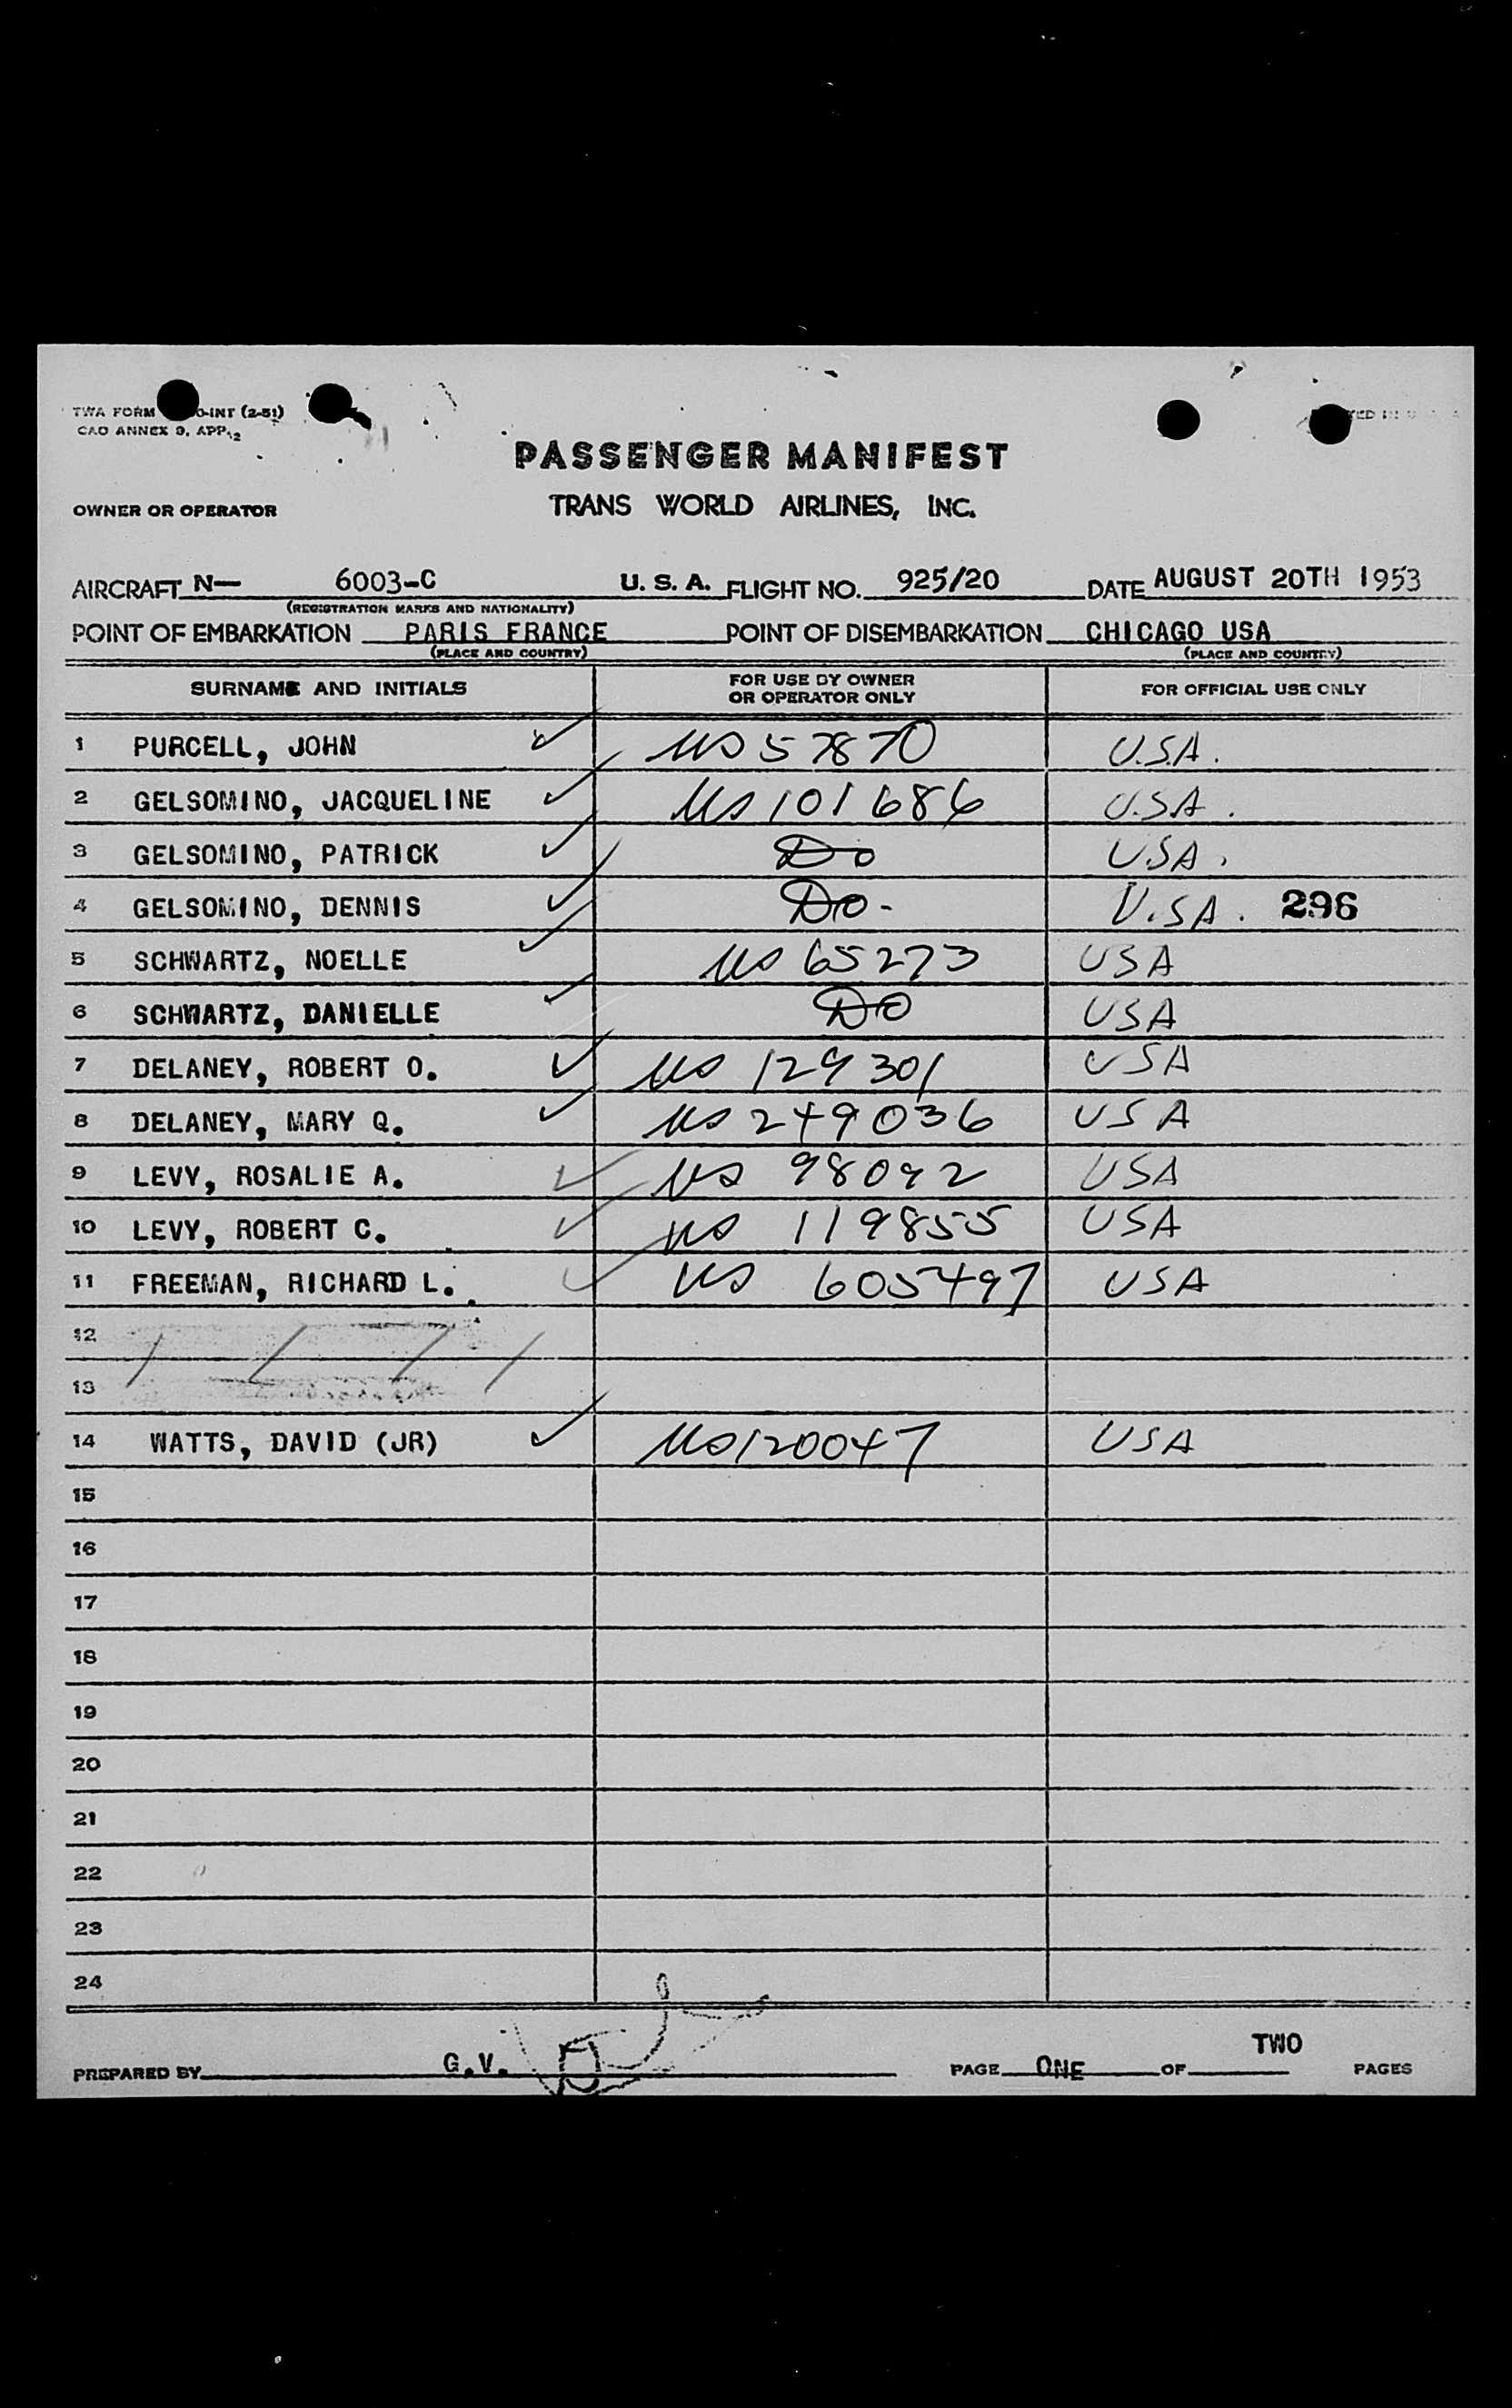 TWA FORM O-INT (2-51)
CAO ANNEX 9, APP. 2
PASSENGER MANIFEST
OWNER OR OPERATOR TRANS WORLD AIRLINES, INC.
AIRCRAFT N— 6003-C U. S. A. FLIGHT NO. 925/20 DATE AUGUST 20TH 1953
(REGISTRATION MARKS AND NATIONALITY)
POINT OF EMBARKATION PARIS FRANCE POINT OF DISEMBARKATION CHICAGO USA
(PLACE AND COUNTRY) (PLACE AND COUNTRY)
SURNAME AND INITIALS FOR USE BY OWNER OR OPERATOR ONLY FOR OFFICIAL USE ONLY
1 PURCELL, JOHN US 57870 U.S.A.
2 GELSOMINO, JACQUELINE US 101686 U.S.A.
3 GELSOMINO, PATRICK Do U.S.A.
4 GELSOMINO, DENNIS Do- U.S.A. 296
5 SCHWARTZ, NOELLE US 65273 USA
6 SCHWARTZ, DANIELLE DO USA
7 DELANEY, ROBERT O. US 129301 USA
8 DELANEY, MARY Q. US 249036 USA
9 LEVY, ROSALIE A. US 98092 USA
10 LEVY, ROBERT C. US 119855 USA
11 FREEMAN, RICHARD L. US 605497 USA
12
13
14 WATTS, DAVID (JR) US 120047 USA
15
16
17
18
19
20
21
22
23
24
PREPARED BY G.V. PAGE ONE OF TWO PAGES